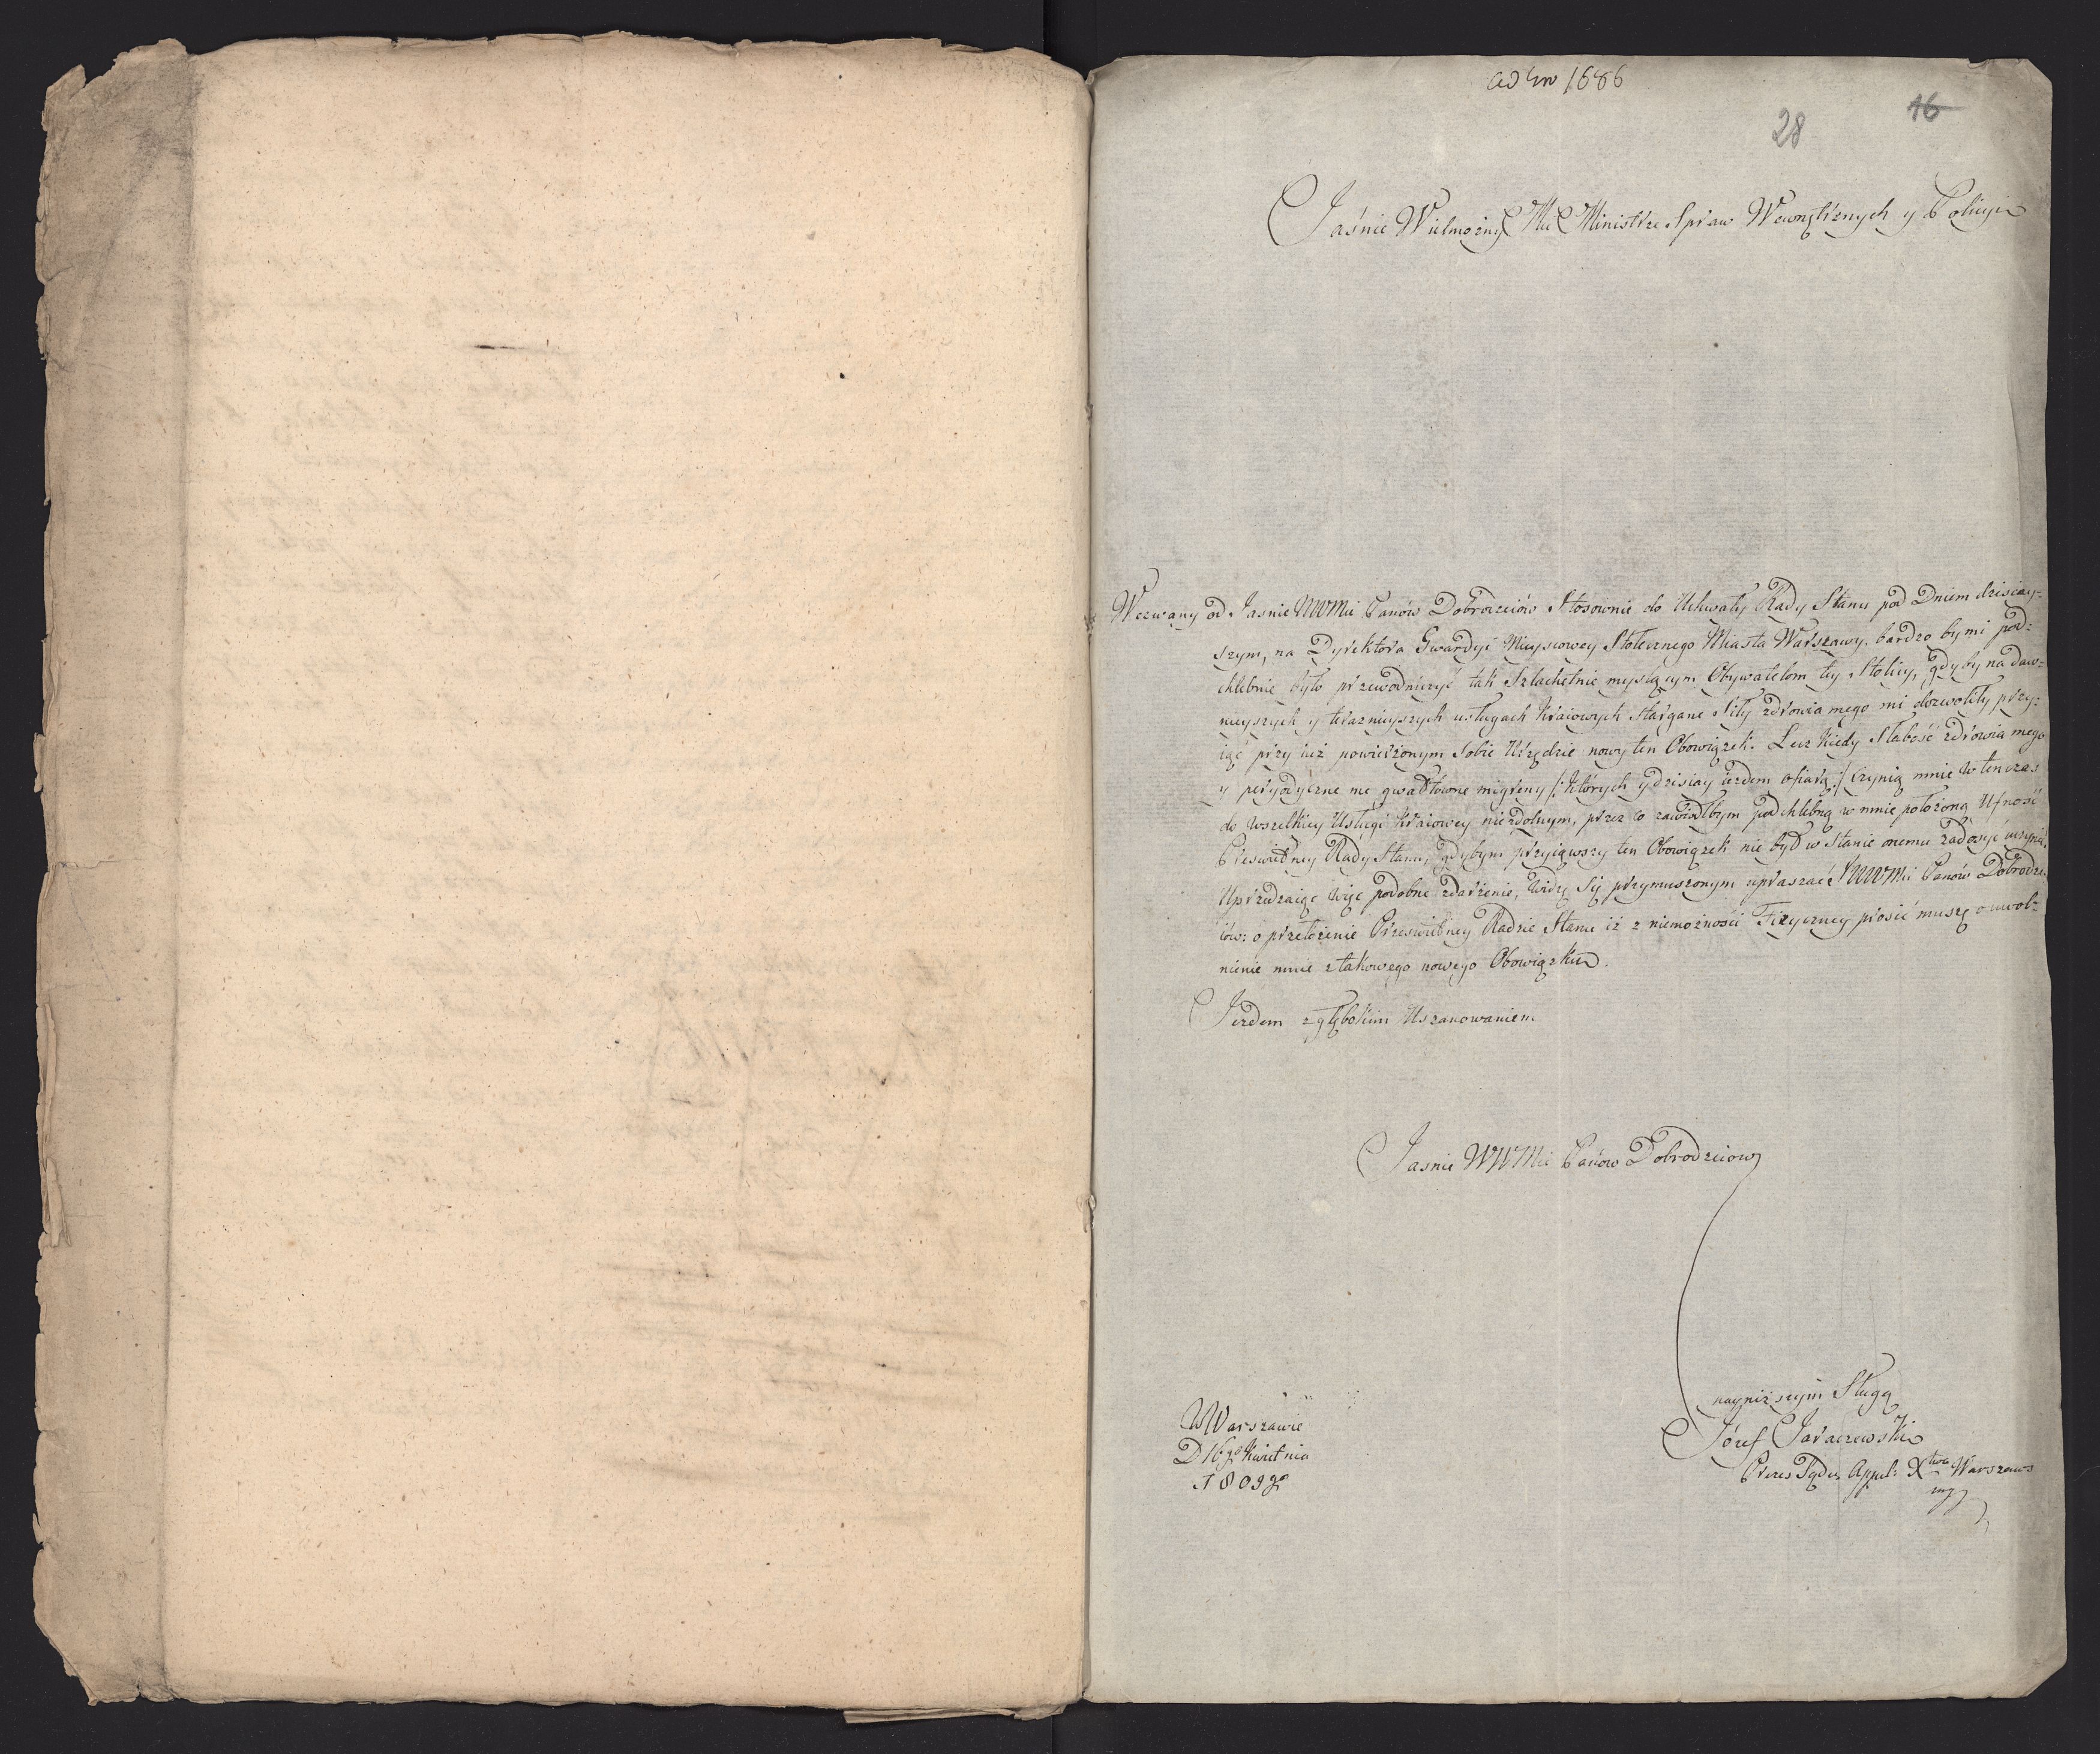 ad 1686
28
16
Jaśnie Wielmożny Mci Ministrze Spraw Wewnętrznych y Policyi
Wezwany od Jasnie WWMci Panów Dobrodzieiów Stosownie do Uchwały Rady Stanu pod Dniem dzisiay=
szym, na Dyrektora Gwardyi Mieyscowey Stołecznego Miasta Warszawy. bardzo by mi pod=
chlebnie było przewodniczyć tak Szlachetnie myslącym Obywatelom tey Stolicy, gdyby na daw=
nieyszych y teraznieyszych usługach Kraiowych Stargane Siły zdrowia mego mi dozwoliły przy=
iąć przy iuż powierzonym Sobie Urzędzie nowy ten Obowiązek. Lecz Kiedy Słabość zdrowia mego
y peryodyczne me gwałtowne migreny /: Których y dzisiay iezdem ofiarą :/ Czynią mnie w ten czas
do wszelkiey Usługi Kraiowey niezdolnym, przez co zawiodłbym podchlebną w mnie położoną Ufność
Prześwietney Rady Stanu, gdybym przyiąwszy ten Obowiązek nie był w Stanie onemu zadosyć uczynić.
Uprzedzaiąc więc podobne zdarzenie, widzę Się przymuszonym upraszać JWWMci Panów Dobrodzie=
iów: o przełożenie Prześwietney Radzie Stanu iż z niemożności Fizyczney prosić muszę o uwol=
nienie mnie z takowego nowego Obowiązku.
Jezdem z głębokim Uszanowaniem
Jasnie WWMci Panów Dobrodzieiow
nayniższym Sługą
Józef Jaraczewski
Prezes Sądu Appel: Xtwa Warszaws
mp
W Warszawie
D 16go Kwietnia
1809go